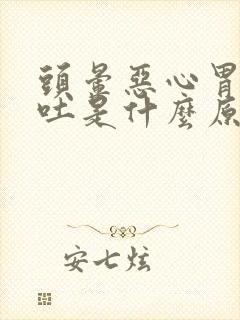 頭暈惡心胃
吐是什麼原
安七炫